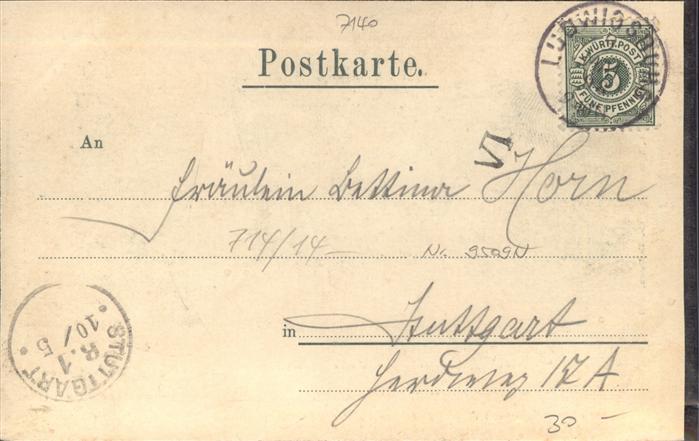 7140
Postkarte.
LUDWIGSBURG
K. WÜRTT. POST
5
FÜNF PFENNIG
An
VI
Fräulein Bettina Horn
714/14 —
Nr. 9509N
in Stuttgart
Herdweg 12 A
STUTTGART
R. 1
10/5
30 —